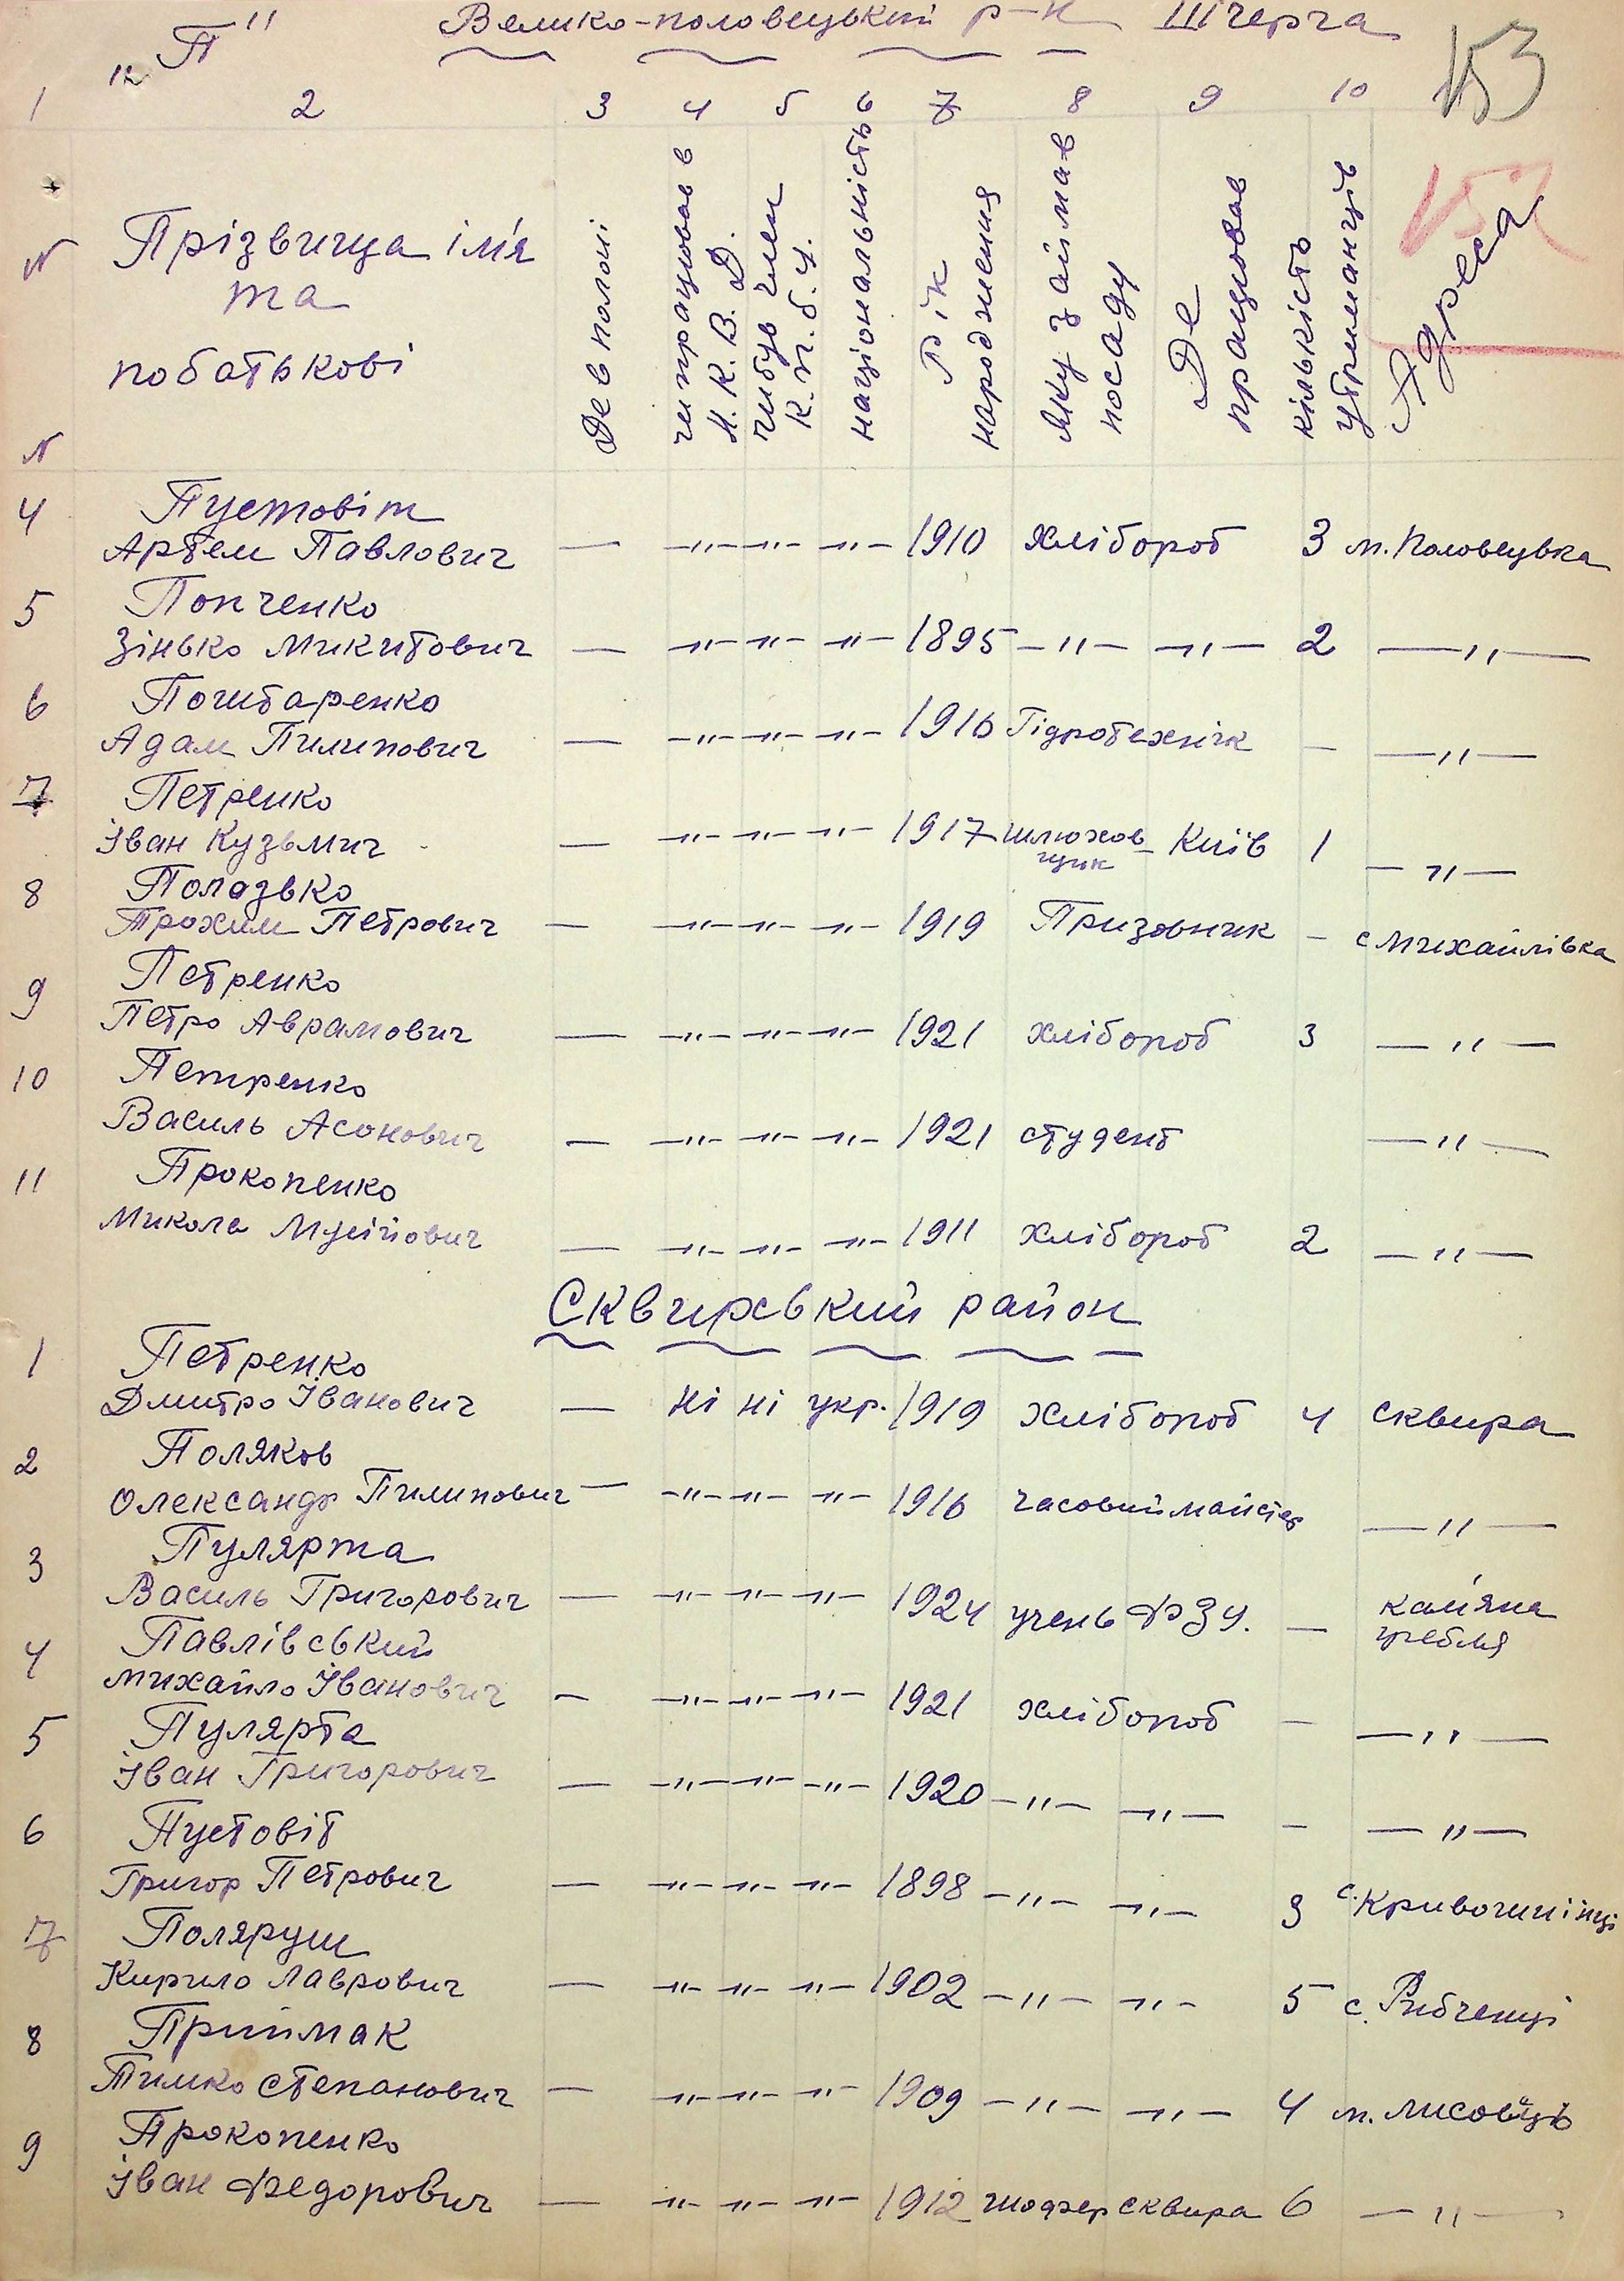 "П" Велико-половецький р-н III черга
153
1 2 3 4 5 6 7 8 9 10
152
N Прізвища ім'я
та
побатькові
N
Де в полоні
чи працював в
Н.К.В.Д.
чи був член
К.П.б.У.
національність
Рік
народження
яку займав
посаду
Де
працював
кількість
утриманців
Адреса
4 Пустовіт
Артем Павлович — —"— —"— —"— 1910 хлібороб 3 м. Половецька
5 Попченко
Зінько Микитович — —"— —"— —"— 1895 —"— —"— 2 —"—
6 Почтаренко
Адам Пилипович — —"— —"— —"— 1916 Гідротехнік — —"—
7 Петренко
Іван Кузьмич — —"— —"— —"— 1917 шлюхов
щик — Київ 1 —"—
8 Полазько
Трохим Петрович — —"— —"— —"— 1919 Призовник — с Михайлівка
9 Петренко
Петро Аврамович — —"— —"— —"— 1921 хлібороб 3 —"—
10 Петренко
Василь Асонович — —"— —"— —"— 1921 студент —"—
11 Прокопенко
Микола Мусійович — —"— —"— —"— 1911 хлібороб 2 —"—
Сквирський район
1 Петренко
Дмитро Іванович — ні ні укр. 1919 хлібороб 4 Сквира
2 Поляков
Олександр Пилипович — —"— —"— —"— 1916 часовий майстер —"—
3 Пулярта
Василь Григорович — —"— —"— —"— 1924 учень ФЗУ. — кам'яна
гребля
4 Павлівський
Михайло Іванович — —"— —"— —"— 1921 хлібороб — —"—
5 Пулярта
Іван Григорович — —"— —"— —"— 1920 —"— —"— — —"—
6 Пустовіт
Григор Петрович — —"— —"— —"— 1898 —"— —"— 3 с. Кривошиїнці
7 Поляруш
Кирило Лаврович — —"— —"— —"— 1902 —"— —"— 5 с. Рибченці
8 Приймак
Тимко Степанович — —"— —"— —"— 1909 —"— —"— 4 м.
9 Прокопенко
Іван Федорович — —"— —"— —"— 1912 Шофер Сквира 6 —"—